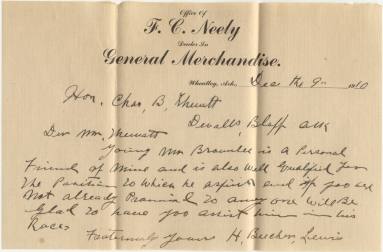 Office Of
F. C. Neely
Dealer In
General Merchandise.
Wheatley, Ark., Dec the 9th 1910
Hon. Chas, B, Thweatt
Devalls Bluff Ark
Dear Mr, Thweatt
Young Mr Brownlee is a Personal
Friend of Mine and is also Well Qualified For
The Position to which he aspires and if you are
Not already Promised to any one Will Be
Glad to have you assist him in his
Races
Fraternally yours H Lewis